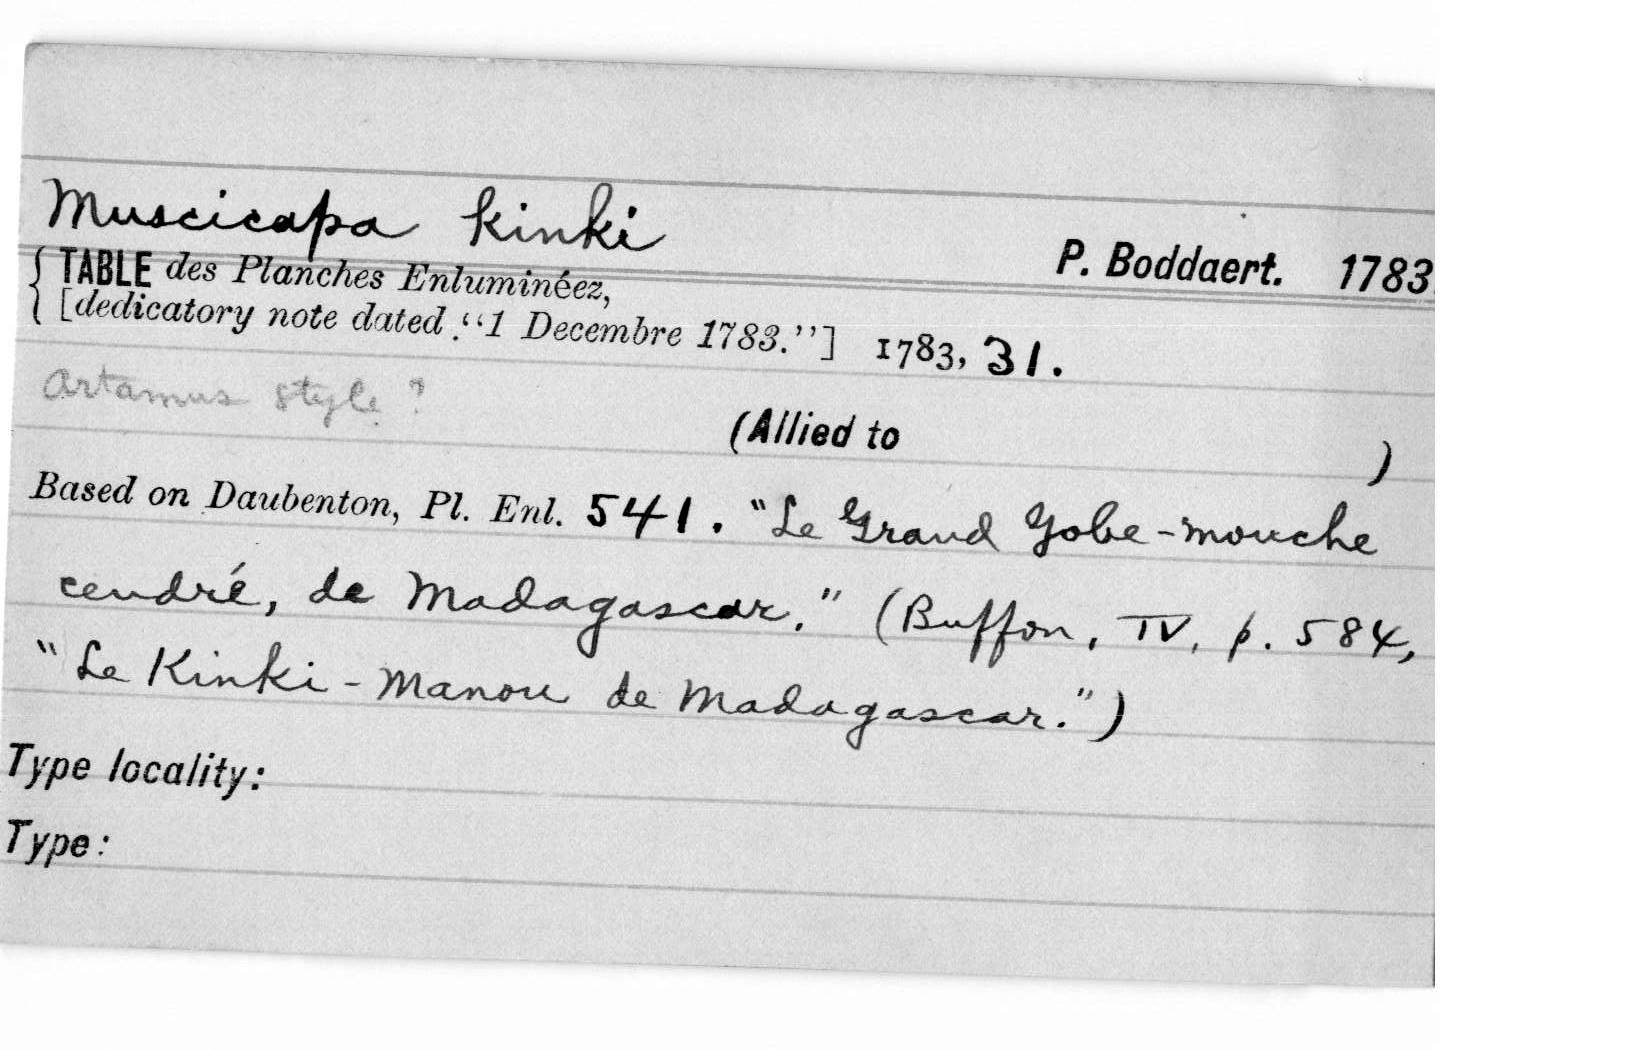 Muscicapa kinki
P. Boddaert. 1783.
{ TABLE des Planches Enluminéez,
[dedicatory note dated "1 Decembre 1783."] 1783, 31.
Artamus style?
(Allied to )
Based on Daubenton, Pl. Enl. 541. "Le Grand Gobe-mouche
cendré, de Madagascar." (Buffon, IV, p. 584,
"Le Kinki-Manou de Madagascar.")
Type locality:
Type: